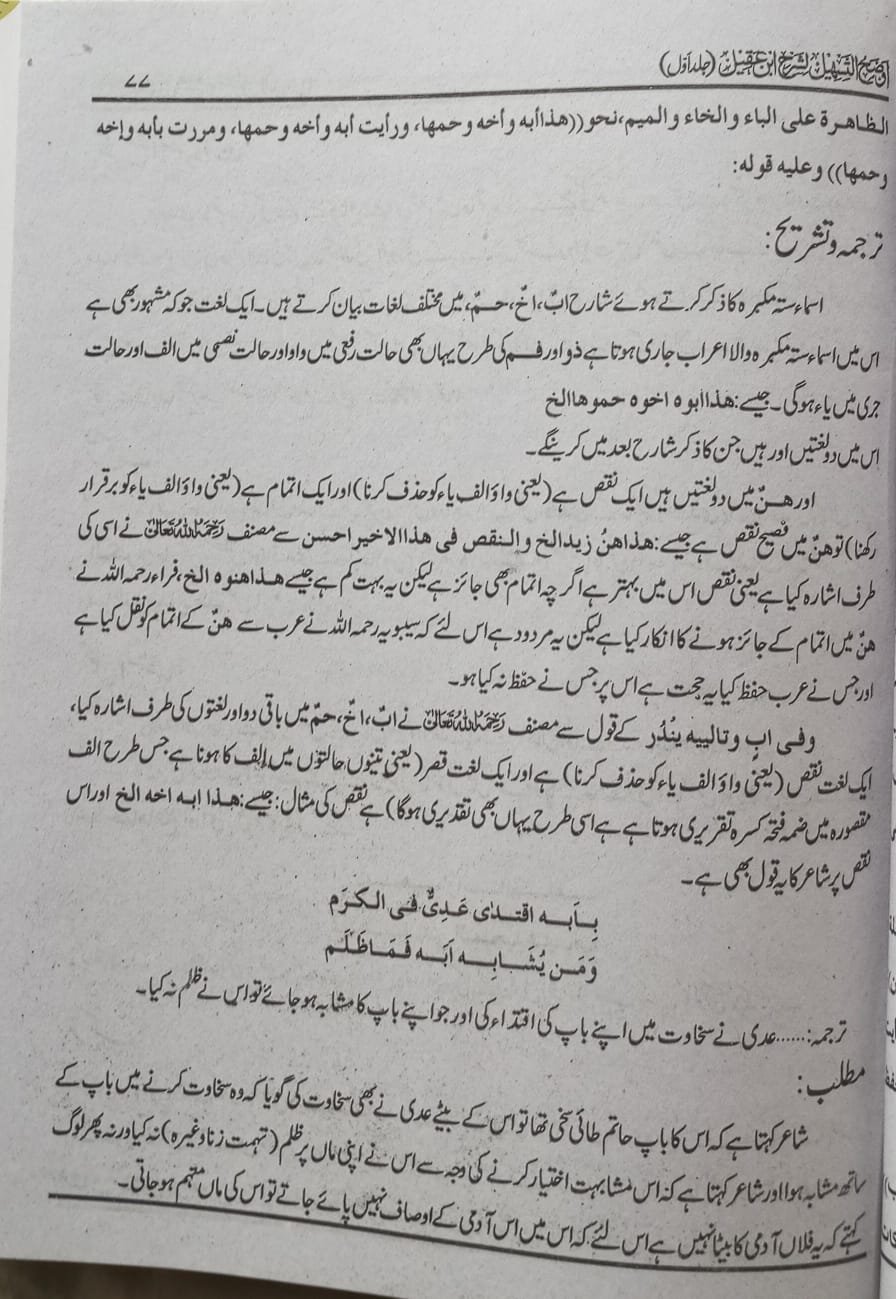 اوضح التسہیل لشرح ابن عقیل (جلد اول)
۷۷
الظاهرة على الباء والخاء والميم، نحو ((هذا أبه وأخه وحمها، ورأيت أبه وأخه وحمها، ومررت بأبه وإخه
وحمها)) وعليه قوله:
ترجمہ وتشریح:
اسماء ستہ مکبرہ کا ذکر کرتے ہوئے شارح ابٌ، اخٌ، حمٌ، میں مختلف لغات بیان کرتے ہیں۔ ایک لغت جو کہ مشہور بھی ہے
اس میں اسماء ستہ مکبرہ والا اعراب جاری ہوتا ہے ذو اور فم کی طرح یہاں بھی حالت رفعی میں واو اور حالت نصبی میں الف اور حالت
جری میں یاء ہوگی۔ جیسے: هذا أبوه اخوه حموها الخ
اس میں دو لغتیں اور ہیں جن کا ذکر شارح بعد میں کرینگے۔
اور هنٌ میں دو لغتیں ہیں ایک نقص ہے (یعنی واؤ الف یاء کو حذف کرنا) اور ایک اتمام ہے (یعنی واؤ الف یاء کو برقرار
رکھنا) تو هنٌ میں فصیح نقص ہے جیسے: هذا هنُ زيد الخ والنقص فى هذا الاخير احسن سے مصنف رَحِمَهُ اللهُ تَعَالىٰ نے اسی کی
طرف اشارہ کیا ہے یعنی نقص اس میں بہتر ہے اگر چہ اتمام بھی جائز ہے لیکن یہ بہت کم ہے جیسے هذا هنوه الخ، فراء رحمہ اللہ نے
هنٌ میں اتمام کے جائز ہونے کا انکار کیا ہے لیکن یہ مردود ہے اس لئے کہ سیبویہ رحمہ اللہ نے عرب سے هنٌ کے اتمام کو نقل کیا ہے
اور جس نے عرب حفظ کیا یہ حجت ہے اس پر جس نے حفظ نہ کیا ہو۔
وفى ابٍ وتالييه يندُر کے قول سے مصنف رَحِمَهُ اللهُ تَعَالىٰ نے ابٌ، اخٌ، حمٌ میں باقی دو اور لغتوں کی طرف اشارہ کیا،
ایک لغت نقص (یعنی واؤ الف یاء کو حذف کرنا) ہے اور ایک لغت قصر (یعنی تینوں حالتوں میں الف کا ہونا ہے جس طرح الف
مقصورہ میں ضمہ فتحہ کسرہ تقریری ہوتا ہے ہے اسی طرح یہاں بھی تقدیری ہوگا) ہے نقص کی مثال: جیسے: هذا ابه اخه الخ اور اس
نقص پر شاعر کا یہ قول بھی ہے۔
بِأَبِه اقتدىٰ عَدِىٌّ فى الكرَم
وَمَن يُشَابِه اَبَه فَمَا ظَلَم
ترجمہ:......عدی نے سخاوت میں اپنے باپ کی اقتداء کی اور جو اپنے باپ کا مشابہ ہو جائے تو اس نے ظلم نہ کیا۔
مطلب:
شاعر کہتا ہے کہ اس کا باپ حاتم طائی سخی تھا تو اس کے بیٹے عدی نے بھی سخاوت کی گویا کہ وہ سخاوت کرنے میں باپ کے
ساتھ مشابہ ہوا اور شاعر کہتا ہے کہ اس مشابہت اختیار کرنے کی وجہ سے اس نے اپنی ماں پر ظلم (تہمت زنا وغیرہ) نہ کیا ورنہ پھر لوگ
کہتے کہ یہ فلاں آدمی کا بیٹا نہیں ہے اس لئے کہ اس میں اس آدمی کے اوصاف نہیں پائے جاتے تو اس کی ماں متہم ہو جاتی۔